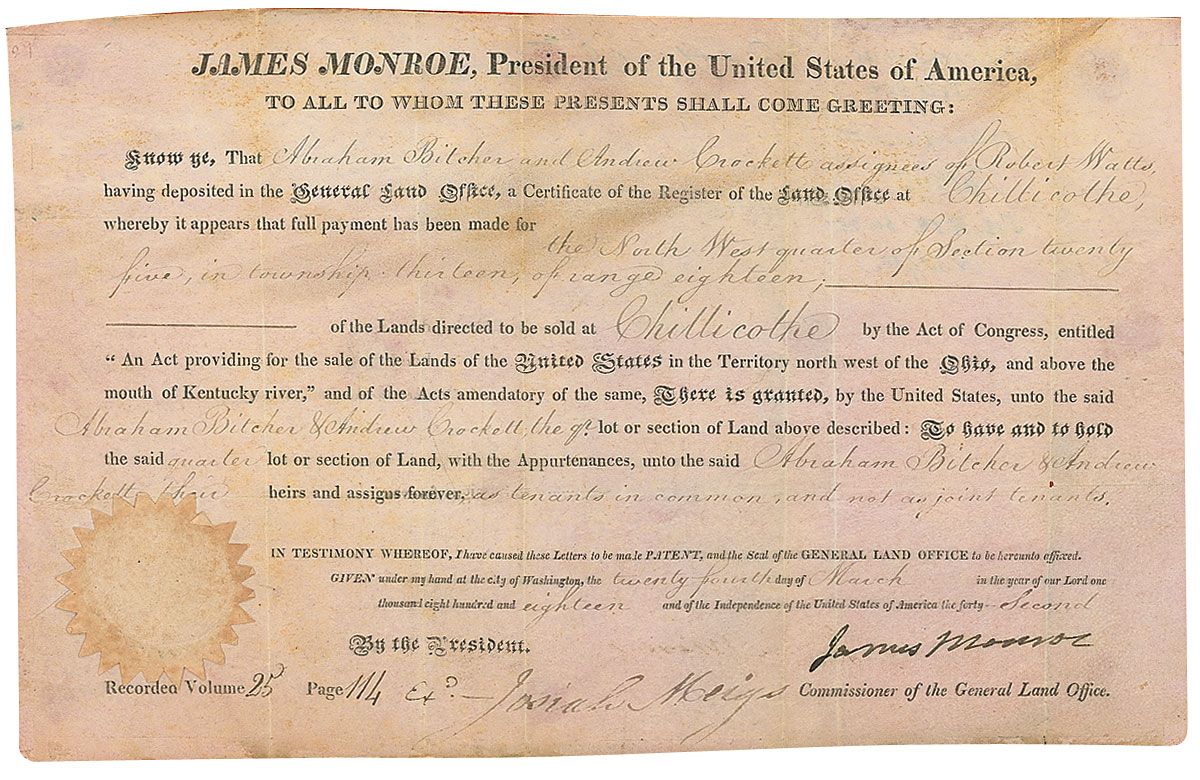 JAMES MONROE, President of the United States of America,
TO ALL TO WHOM THESE PRESENTS SHALL COME GREETING:
Know ye, That Abraham Bitcher and Andrew Crockett assignees of Robert Watts,
having deposited in the General Land Office, a Certificate of the Register of the Land Office at Chillicothe,
whereby it appears that full payment has been made for the North West quarter of Section twenty
five, in township thirteen, of range eighteen,
of the Lands directed to be sold at Chillicothe by the Act of Congress, entitled
“An Act providing for the sale of the Lands of the United States in the Territory north west of the Ohio, and above the
mouth of Kentucky river,” and of the Acts amendatory of the same, There is granted, by the United States, unto the said
Abraham Bitcher & Andrew Crockett, the qr. lot or section of Land above described: To have and to hold
the said quarter lot or section of Land, with the Appurtenances, unto the said Abraham Bitcher & Andrew
Crockett their heirs and assigns forever, as tenants in common, and not as joint tenants.
IN TESTIMONY WHEREOF, I have caused these Letters to be made PATENT, and the Seal of the GENERAL LAND OFFICE to be hereunto affixed.
GIVEN under my hand at the city of Washington, the twenty fourth day of March in the year of our Lord one
thousand eight hundred and eighteen and of the Independence of the United States of America the forty-Second
By the President. James Monroe
Recorded Volume 25 Page 114 Exd. Josiah Meigs Commissioner of the General Land Office.